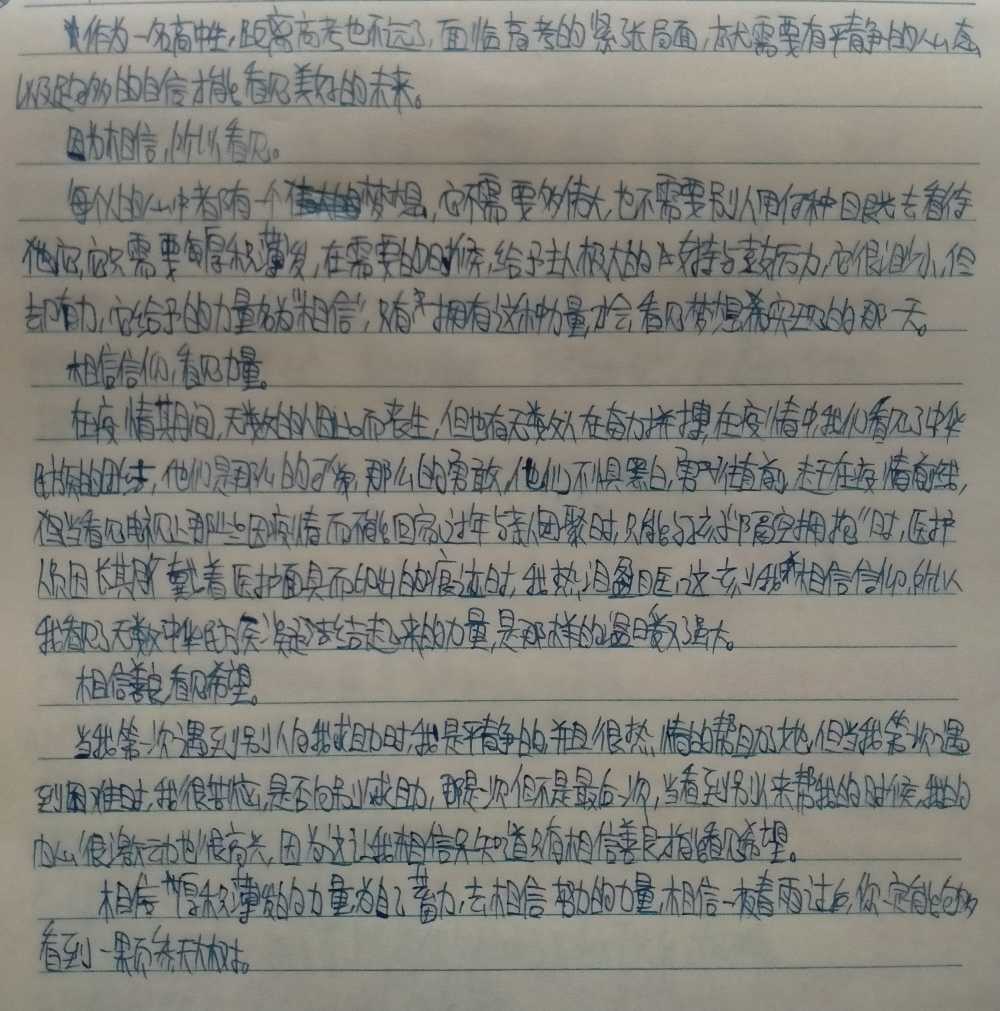 作为一名高中生，距离高考也不远了，面临高考的紧张局面，就需要有平静的心态
以及足够的自信才能看见美好的未来。
因为相信，所以看见。
每个人的心中都有一个梦想，它不需要多伟大，也不需要别人用何种目光去看待
它，它只需要厚积薄发，在需要的时候，给予主人极大的支持与鼓励，它很渺小，但
却有力，它给予的力量名为“相信”，只有拥有这种力量才会看见梦想实现的那一天。
相信信仰，看见力量。
在疫情期间，无数的人因此而丧生，但也有无数人在奋力拼搏，在疫情中我们看见了中华
民族的团结，他们是那么的可靠，那么的勇敢，他们不惧黑白，勇往直前，走在疫情前线，
当看见电视上那些因疫情而不能回家过年与亲人团聚时，只能与孩子“隔空拥抱”时，医护
人员因长期戴着医护面具而印出的痕迹时，我热泪盈眶，这一刻我相信信仰，所以
我看见了无数中华民族凝结起来的力量，是那样的强大。
相信善良，看见希望。
当我第一次遇到别人向我求助时，我是平静的，并且很热情的帮助了她，但当我第一次遇
到困难时，我很苦恼，是否向别人求助，那是一次但不是最后一次，当看到别人来帮我的时候，我的
内心很激动也很高兴，因为这让我相信只有相信善良才能看见希望。
相信厚积薄发的力量，为自己蓄力，去相信努力的力量，相信一夜春雨过后，你一定能够
看到一颗参天大树。